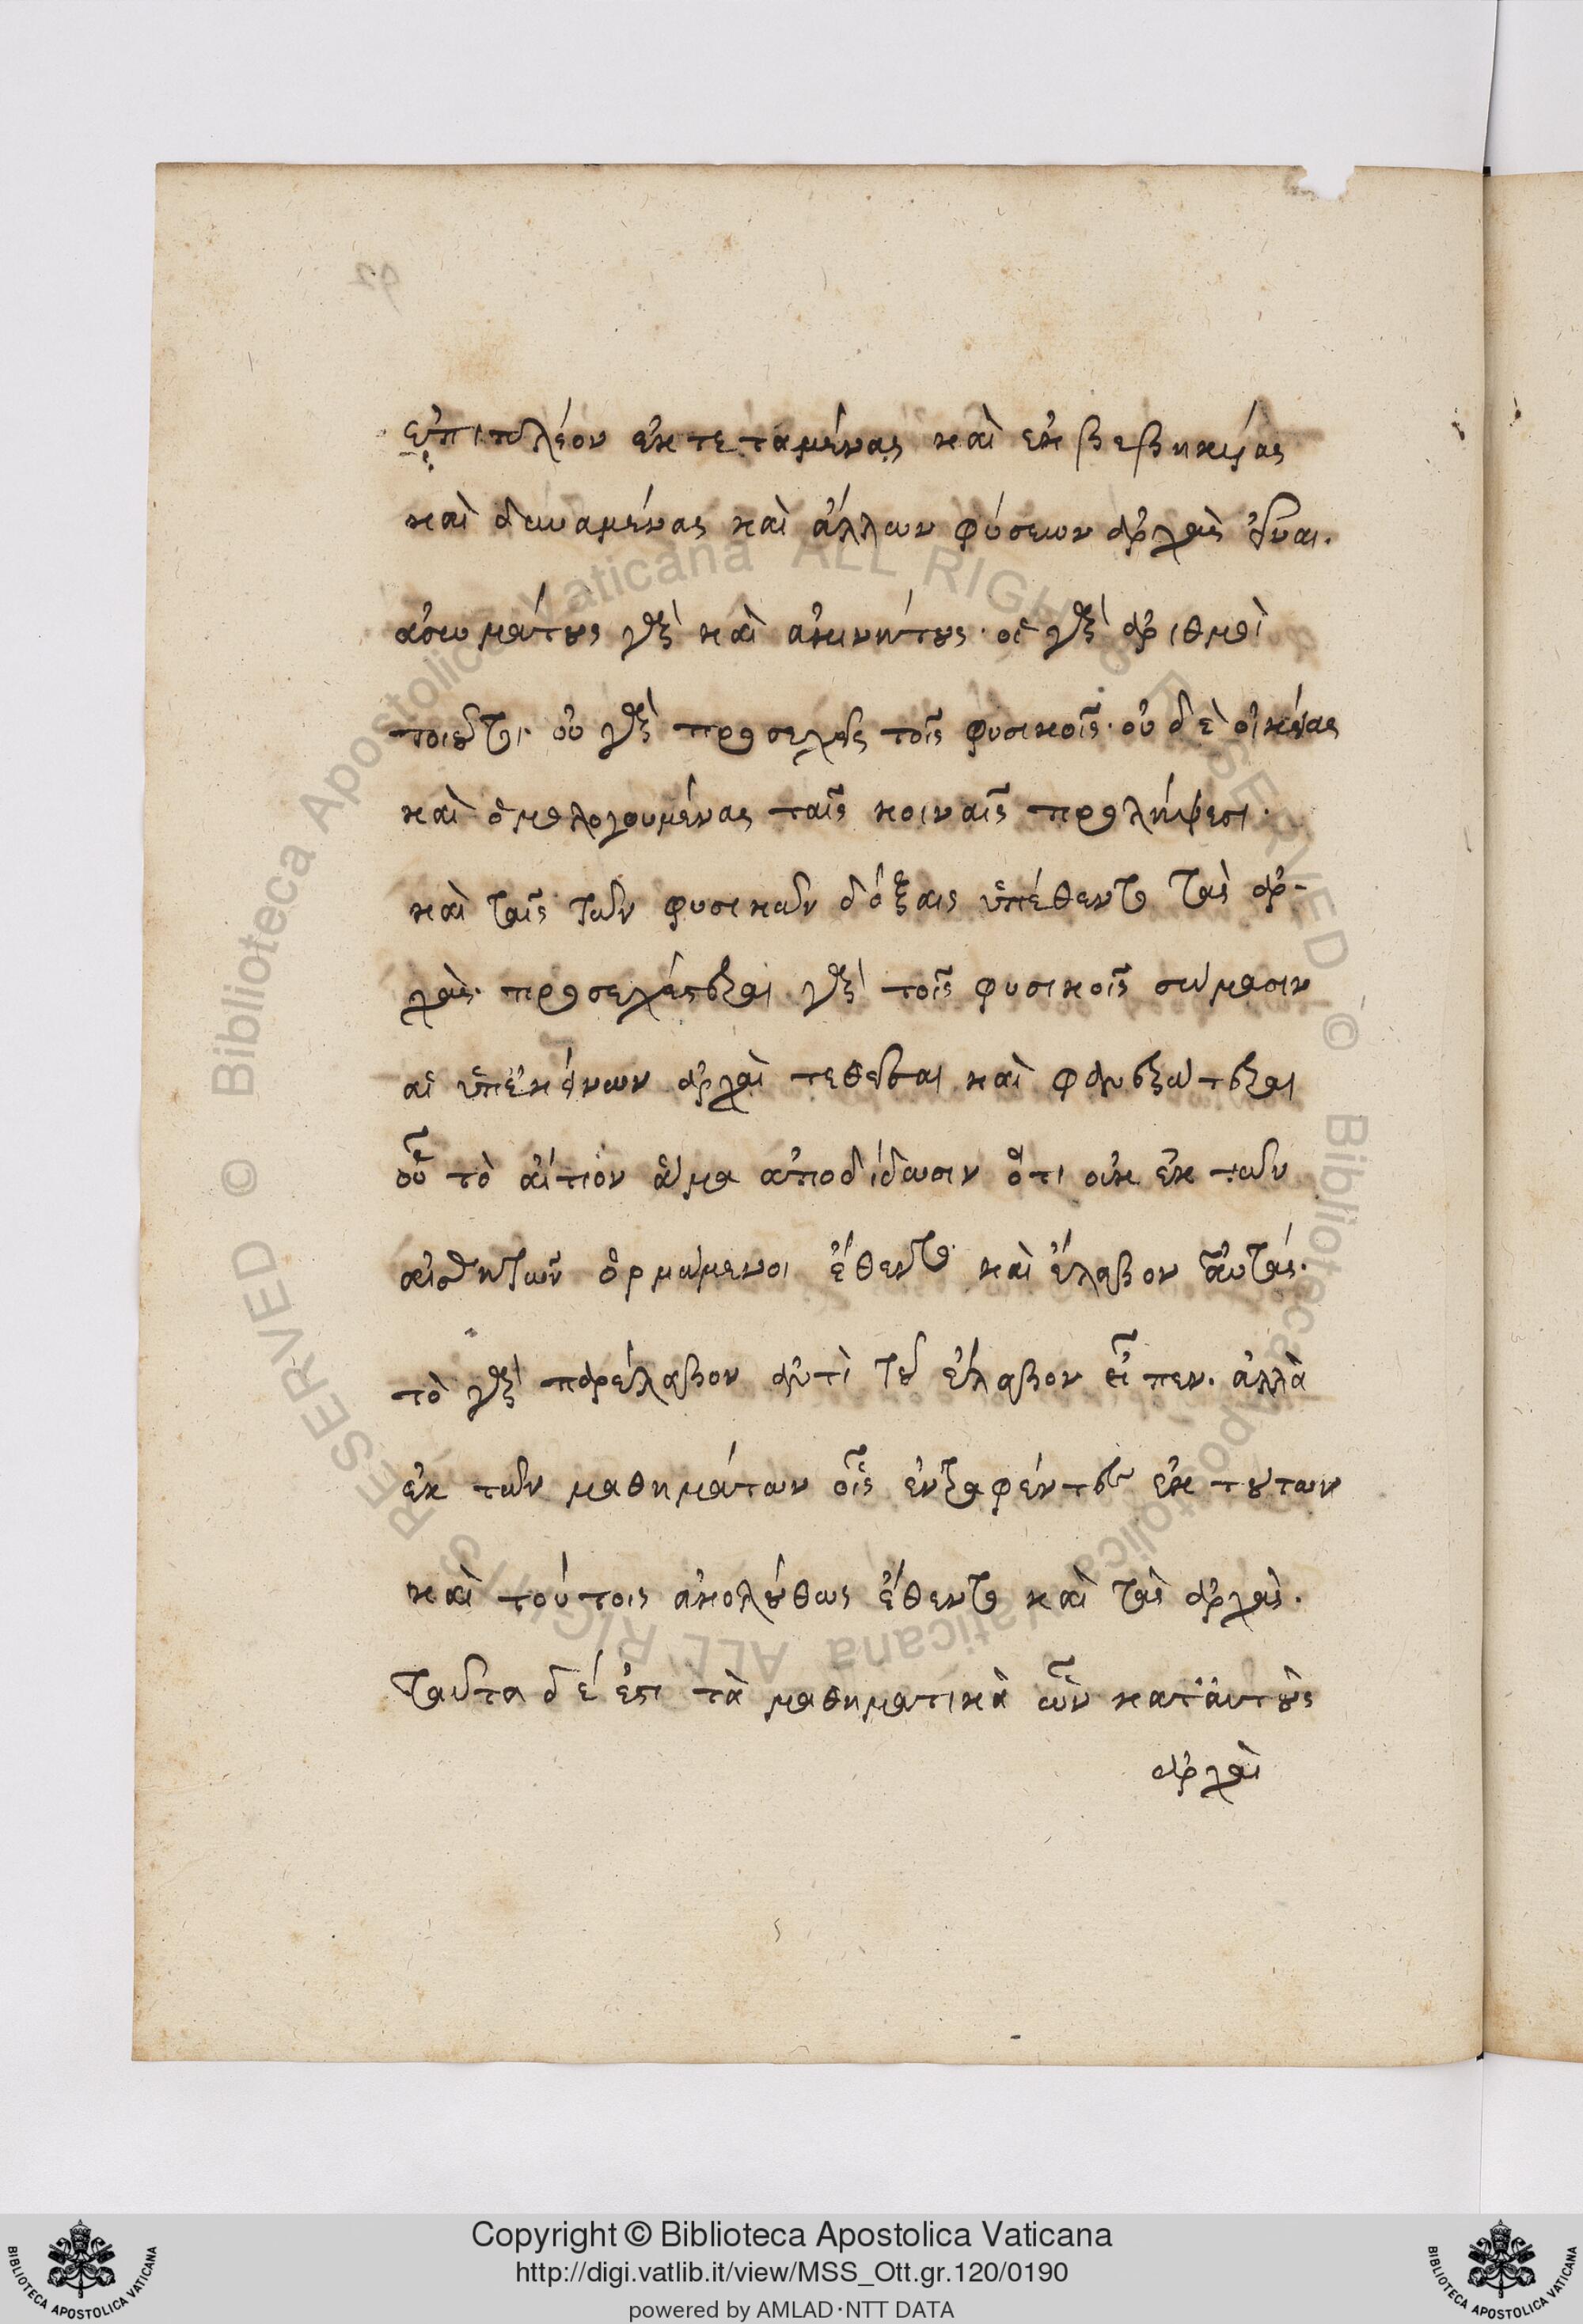 ἐπιπλέον ἐκτεταμένας καὶ ἐκβεβηκυίας
καὶ δυναμένας καὶ ἄλλων φύσεων ἀρχὰς εἶναι.
ἀσωμάτους γὰρ καὶ ἀκινήτους· οἱ γὰρ ἀριθμοὶ
τοιοῦτοι· οὐ γὰρ προσεχεῖς τοῖς φυσικοῖς· οὐδὲ οἰκείας
καὶ ὁμολογουμένας ταῖς κοιναῖς προλήψεσι·
καὶ ταῖς τῶν φυσικῶν δόξαις ὑπέθεντο τὰς ἀρ-
χάς· προσεχέσταται γὰρ τοῖς φυσικοῖς σώμασιν
αἱ ὑπ' ἐκείνων ἀρχαὶ τεθεῖσαι καὶ
οὗ τὸ αἴτιον ἅμα ἀποδίδωσιν ὅτι οὐκ ἐκ τῶν
αἰσθητῶν ὁρμώμενοι ἔθεντο καὶ ἔλαβον αὐτάς.
τὸ γὰρ παρέλαβον ἀντὶ τοῦ ἔλαβον εἶπεν. ἀλλὰ
ἐκ τῶν μαθημάτων οἷς ἐντραφέντες ἐκ τούτων
καὶ τούτοις ἀκολούθως ἔθεντο καὶ τὰς ἀρχάς.
Ταῦτα δέ ἐστι τὰ μαθηματικὰ ὧν κατ' αὐτοὺς
ἀρχαὶ
Copyright © Biblioteca Apostolica Vaticana
http://digi.vatlib.it/view/MSS_Ott.gr.120/0190
powered by AMLAD·NTT DATA
BIBLIOTECA APOSTOLICA VATICANA
BIBLIOTECA APOSTOLICA VATICANA
© Biblioteca Apostolica Vaticana ALL RIGHTS RESERVED © Biblioteca Apostolica Vaticana ALL RIGHTS RESERVED